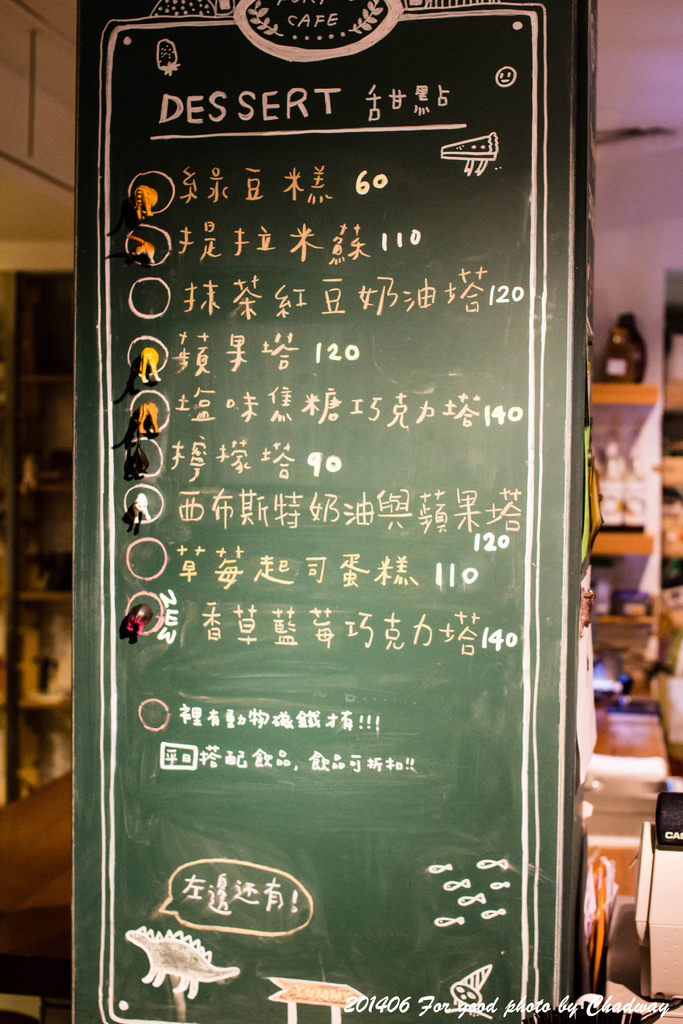 CAFE
DESSERT 甜點
綠豆糕 60
提拉米蘇 110
抹茶紅豆奶油塔 120
蘋果塔 120
塩味焦糖巧克力塔 140
檸檬塔 90
西布斯特奶油與蘋果塔
120
草莓起司蛋糕 110
NEW 香草藍莓巧克力塔 140
裡有動物磁鐵才有!!!
平日搭配飲品, 飲品可折扣!!
左邊还有!
YUMMY
CAS
201406 For good photo by Chadway